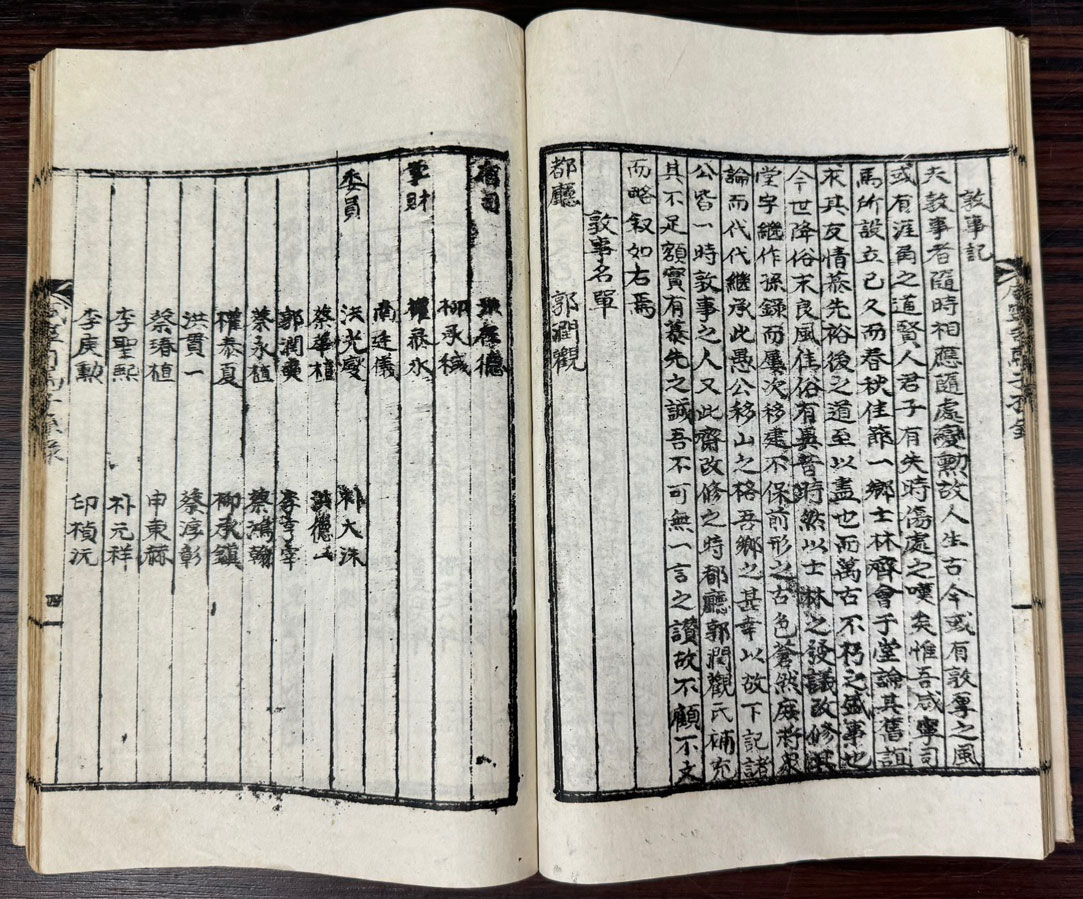 敦事記
夫敦事者隨時相應隨處變動故人生古今或有敦厚之風
或有涯角之道賢人君子有失時傷處之嘆矣惟吾咸寧司
馬所設立已久而春秋佳節一鄉士林齊會于堂論其舊誼
來其友情慕先裕後之道至以盡也而萬古不朽之盛事也
今世降俗末良風佳俗有異昔時然以士林之發議改修
堂宇繼作孫錄而屢次移建不保前形之古色蒼然
論而代代繼承此愚公移山之格吾鄉之甚幸以故下記諸
公皆一時敦事之人又此齋改修之時都廳郭潤觀氏補充
其不足額實有慕先之誠吾不可無一言之讚故不顧不文
而略叙如右焉
敦事名單
都廳 郭潤觀
有司 德
柳承
掌財 權泰
南廷儀
委員 洪光燮 朴大洙
蔡華植 洪德
郭潤 李
蔡永植 蔡鴻翰
權泰夏 柳承鎮
洪貫一 蔡淳彰
蔡瑃植 申東
李聖熙 朴元祥
李庚勳 印楨沅
四